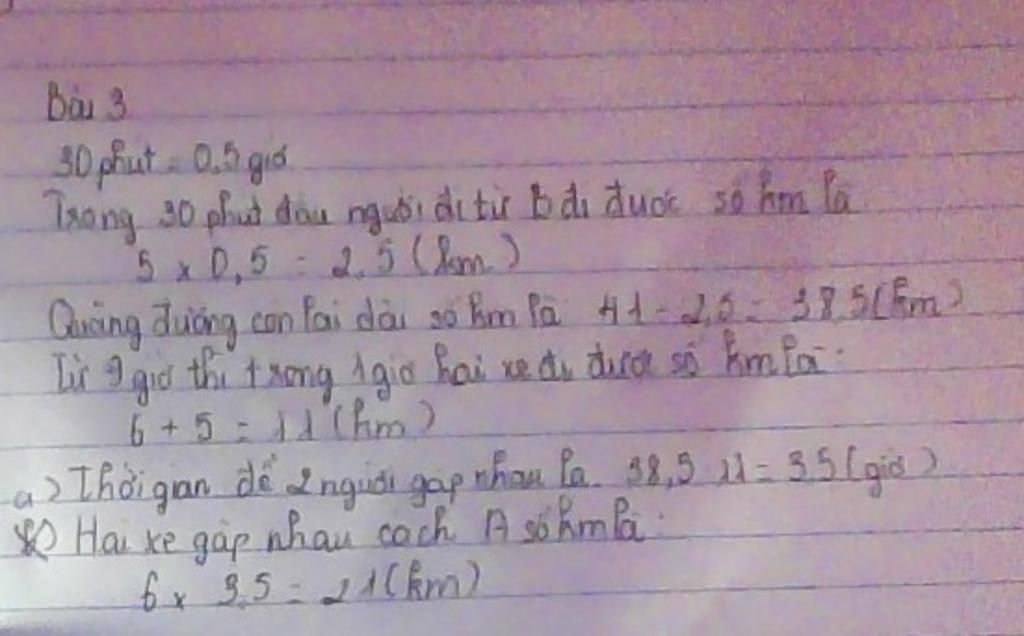 Bài 3
30 phút = 0,5 giờ
Trong 30 phút đầu người đi từ B đi được số km là
5 x 0,5 = 2,5 (km)
Quãng đường còn lại dài số km là 41 - 2,5 = 38,5 (km)
Từ 9 giờ thì trong 1 giờ hai xe đi được số km là:
6 + 5 = 11 (km)
a) Thời gian để 2 người gặp nhau là 38,5 11 = 3,5 (giờ)
Hai xe gặp nhau cách A số km là:
6 x 3,5 = 21 (km)